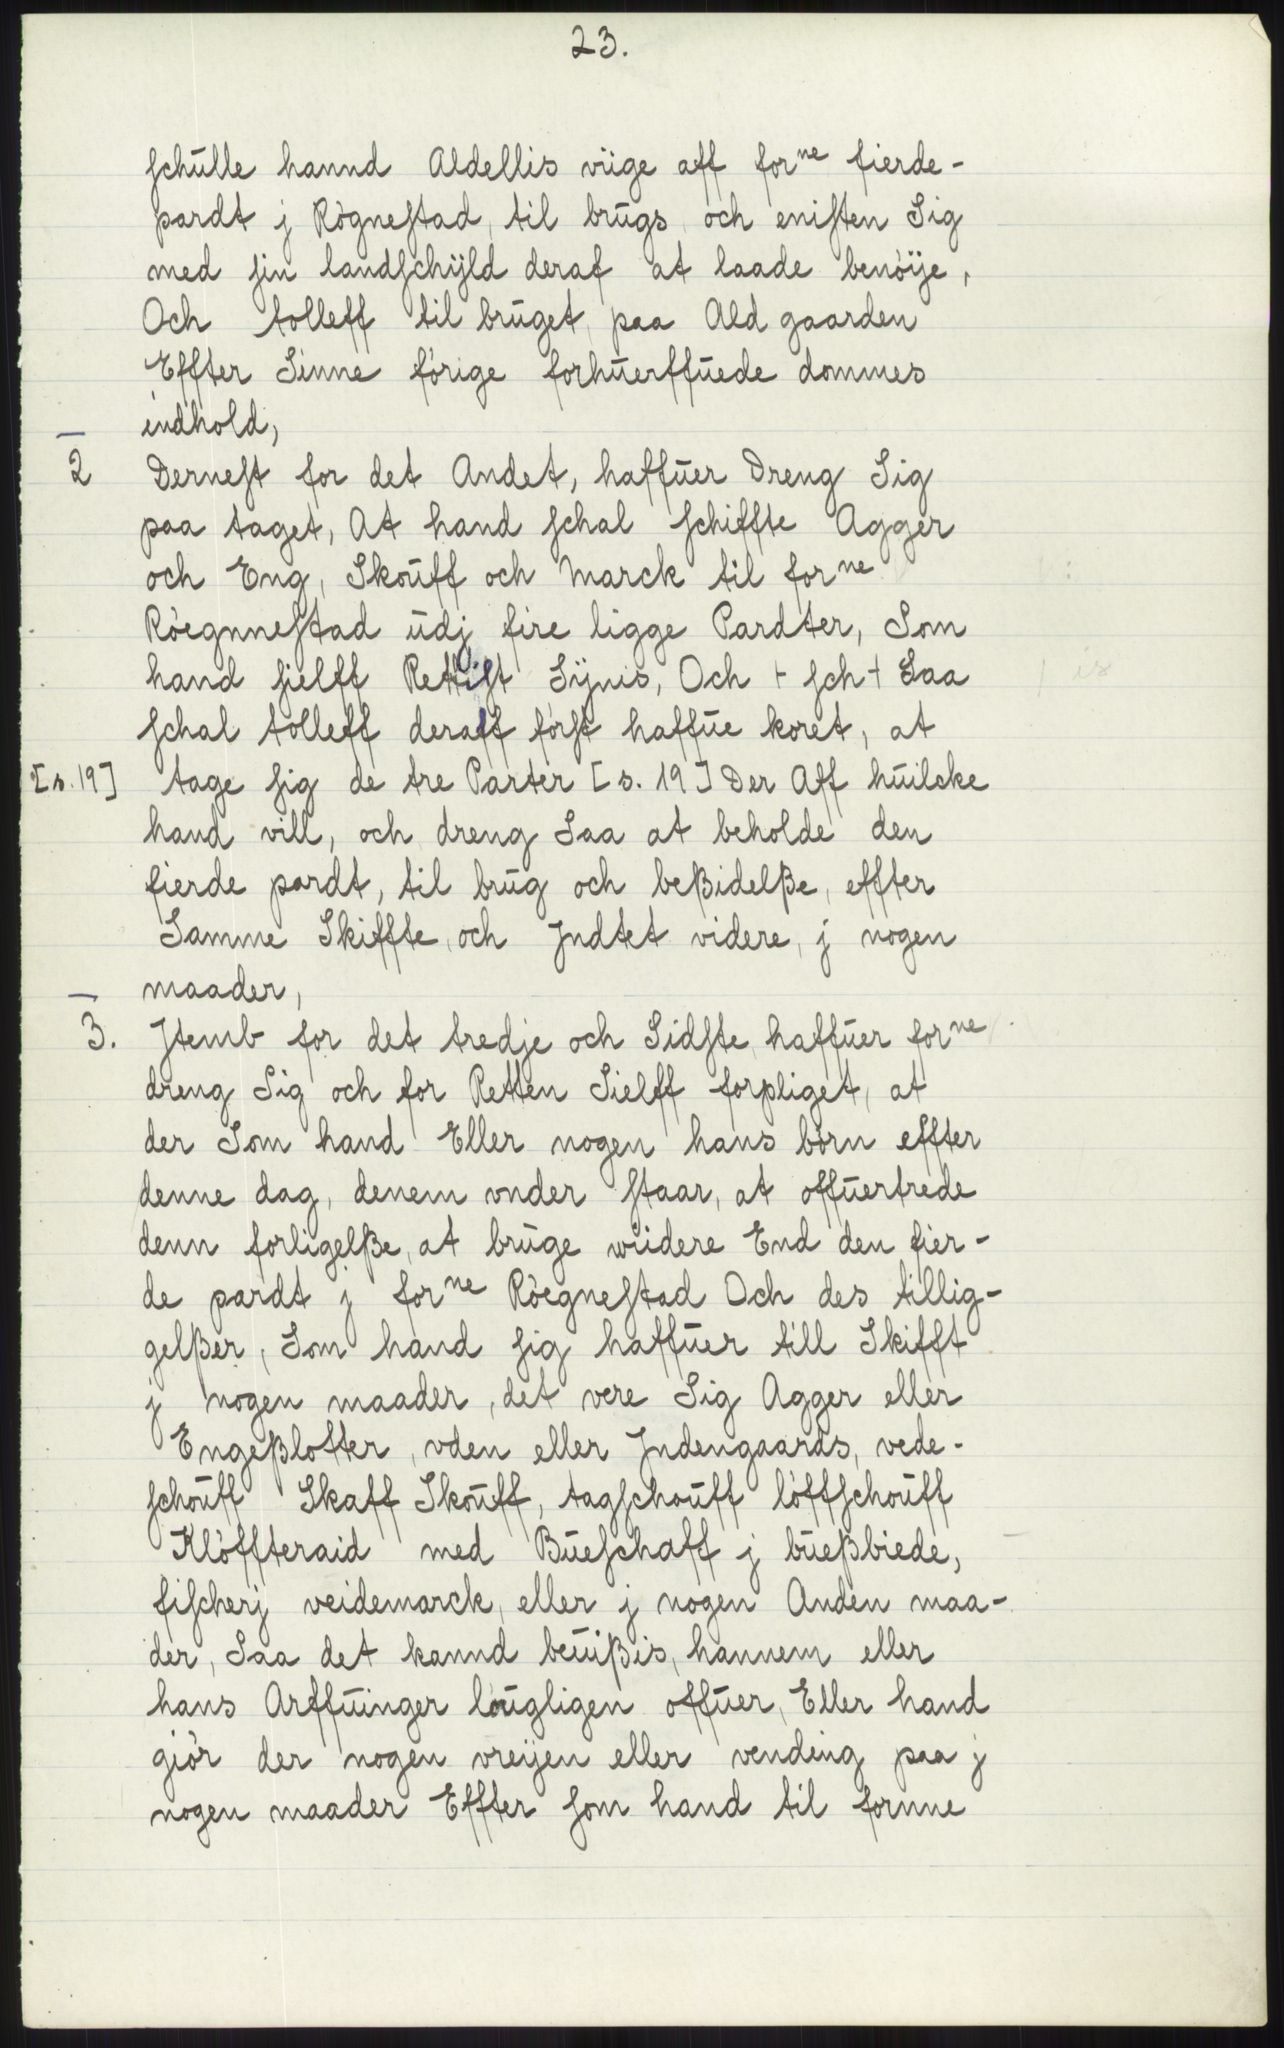 23.
schulle hannd Aldellis viige aff forne fierde-
pardt j Rögnestad, til brugs och enisten Sig
med sin landschÿld deraf at laade benöÿe,
Och tolleff til bruget paa Ald gaarden
Effter Sinne förige forhuerffuede dommes
indhold,
2 Dernest for det Andet, haffuer Dreng Sig
paa taget, At hand schal schiffte Agger
och Eng, Skouff och Marck til forne
Röegnnestad udj fire ligge Pardter, Som
hand sielff Rettist Sÿnis, Och + sch + Saa
schal tolleff deraff först haffue koret, at
[s. 19] tage sig de tre Parter [s. 19] Der Aff huilcke
hand vill, och dreng Saa at beholde den
fierde pardt, til brug och beßidelße, effter
Samme Skiffte, och Jndtet videre, j nogen
maader,
3. Jtemb for det tredje och Sidste haffuer forne
dreng Sig och for Retten Sielff forpliget, at
der Som hand Eller nogen hans börn effter
denne dag, denem vnder staar, at offuertrede
denn forligelße, at bruge wiidere End den fier-
de pardt j forne Röegnestad Och des tillig-
gelßer, Som hand sig haffuer till Skifft
j nogen maader, det vere Sig Agger eller
Engeßlotter, vden eller Jndengaards, vede-
schouff Skaff Skouff, tagschouff löffschouff
Klöffteraid med Bueschaff j bueßbiede,
fischerj veidemarck, eller j nogen Anden maa-
der, Saa det kannd beuißis, hannem eller
hans Arffuinger lougligen offuer, Eller hand
giör der nogen vreÿen eller vending paa j
nogen maader Effter som hand til fornne
is